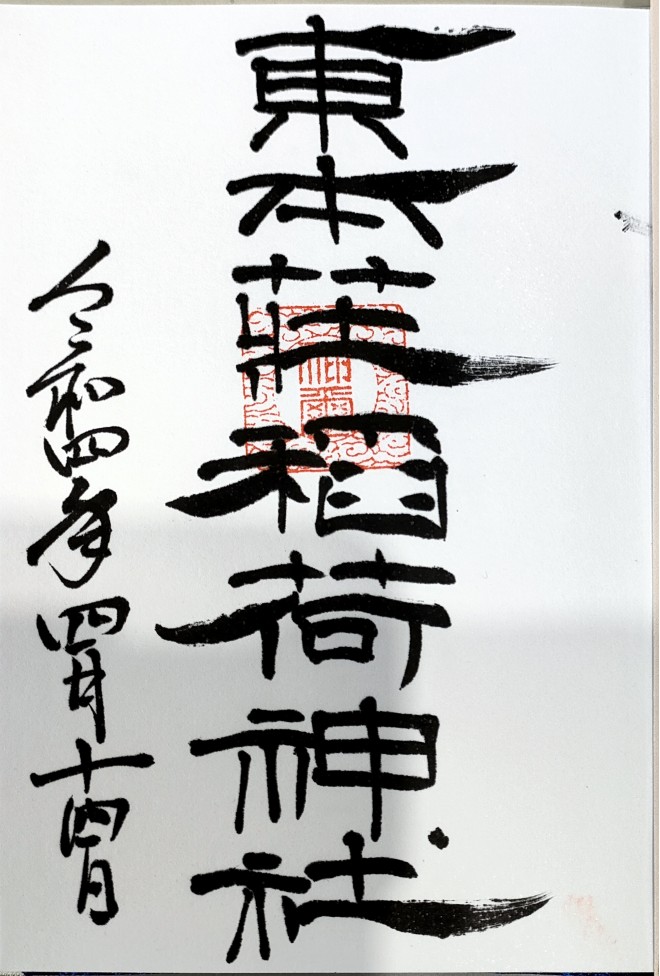 東本荘稲荷神社
令和四年四月十四日